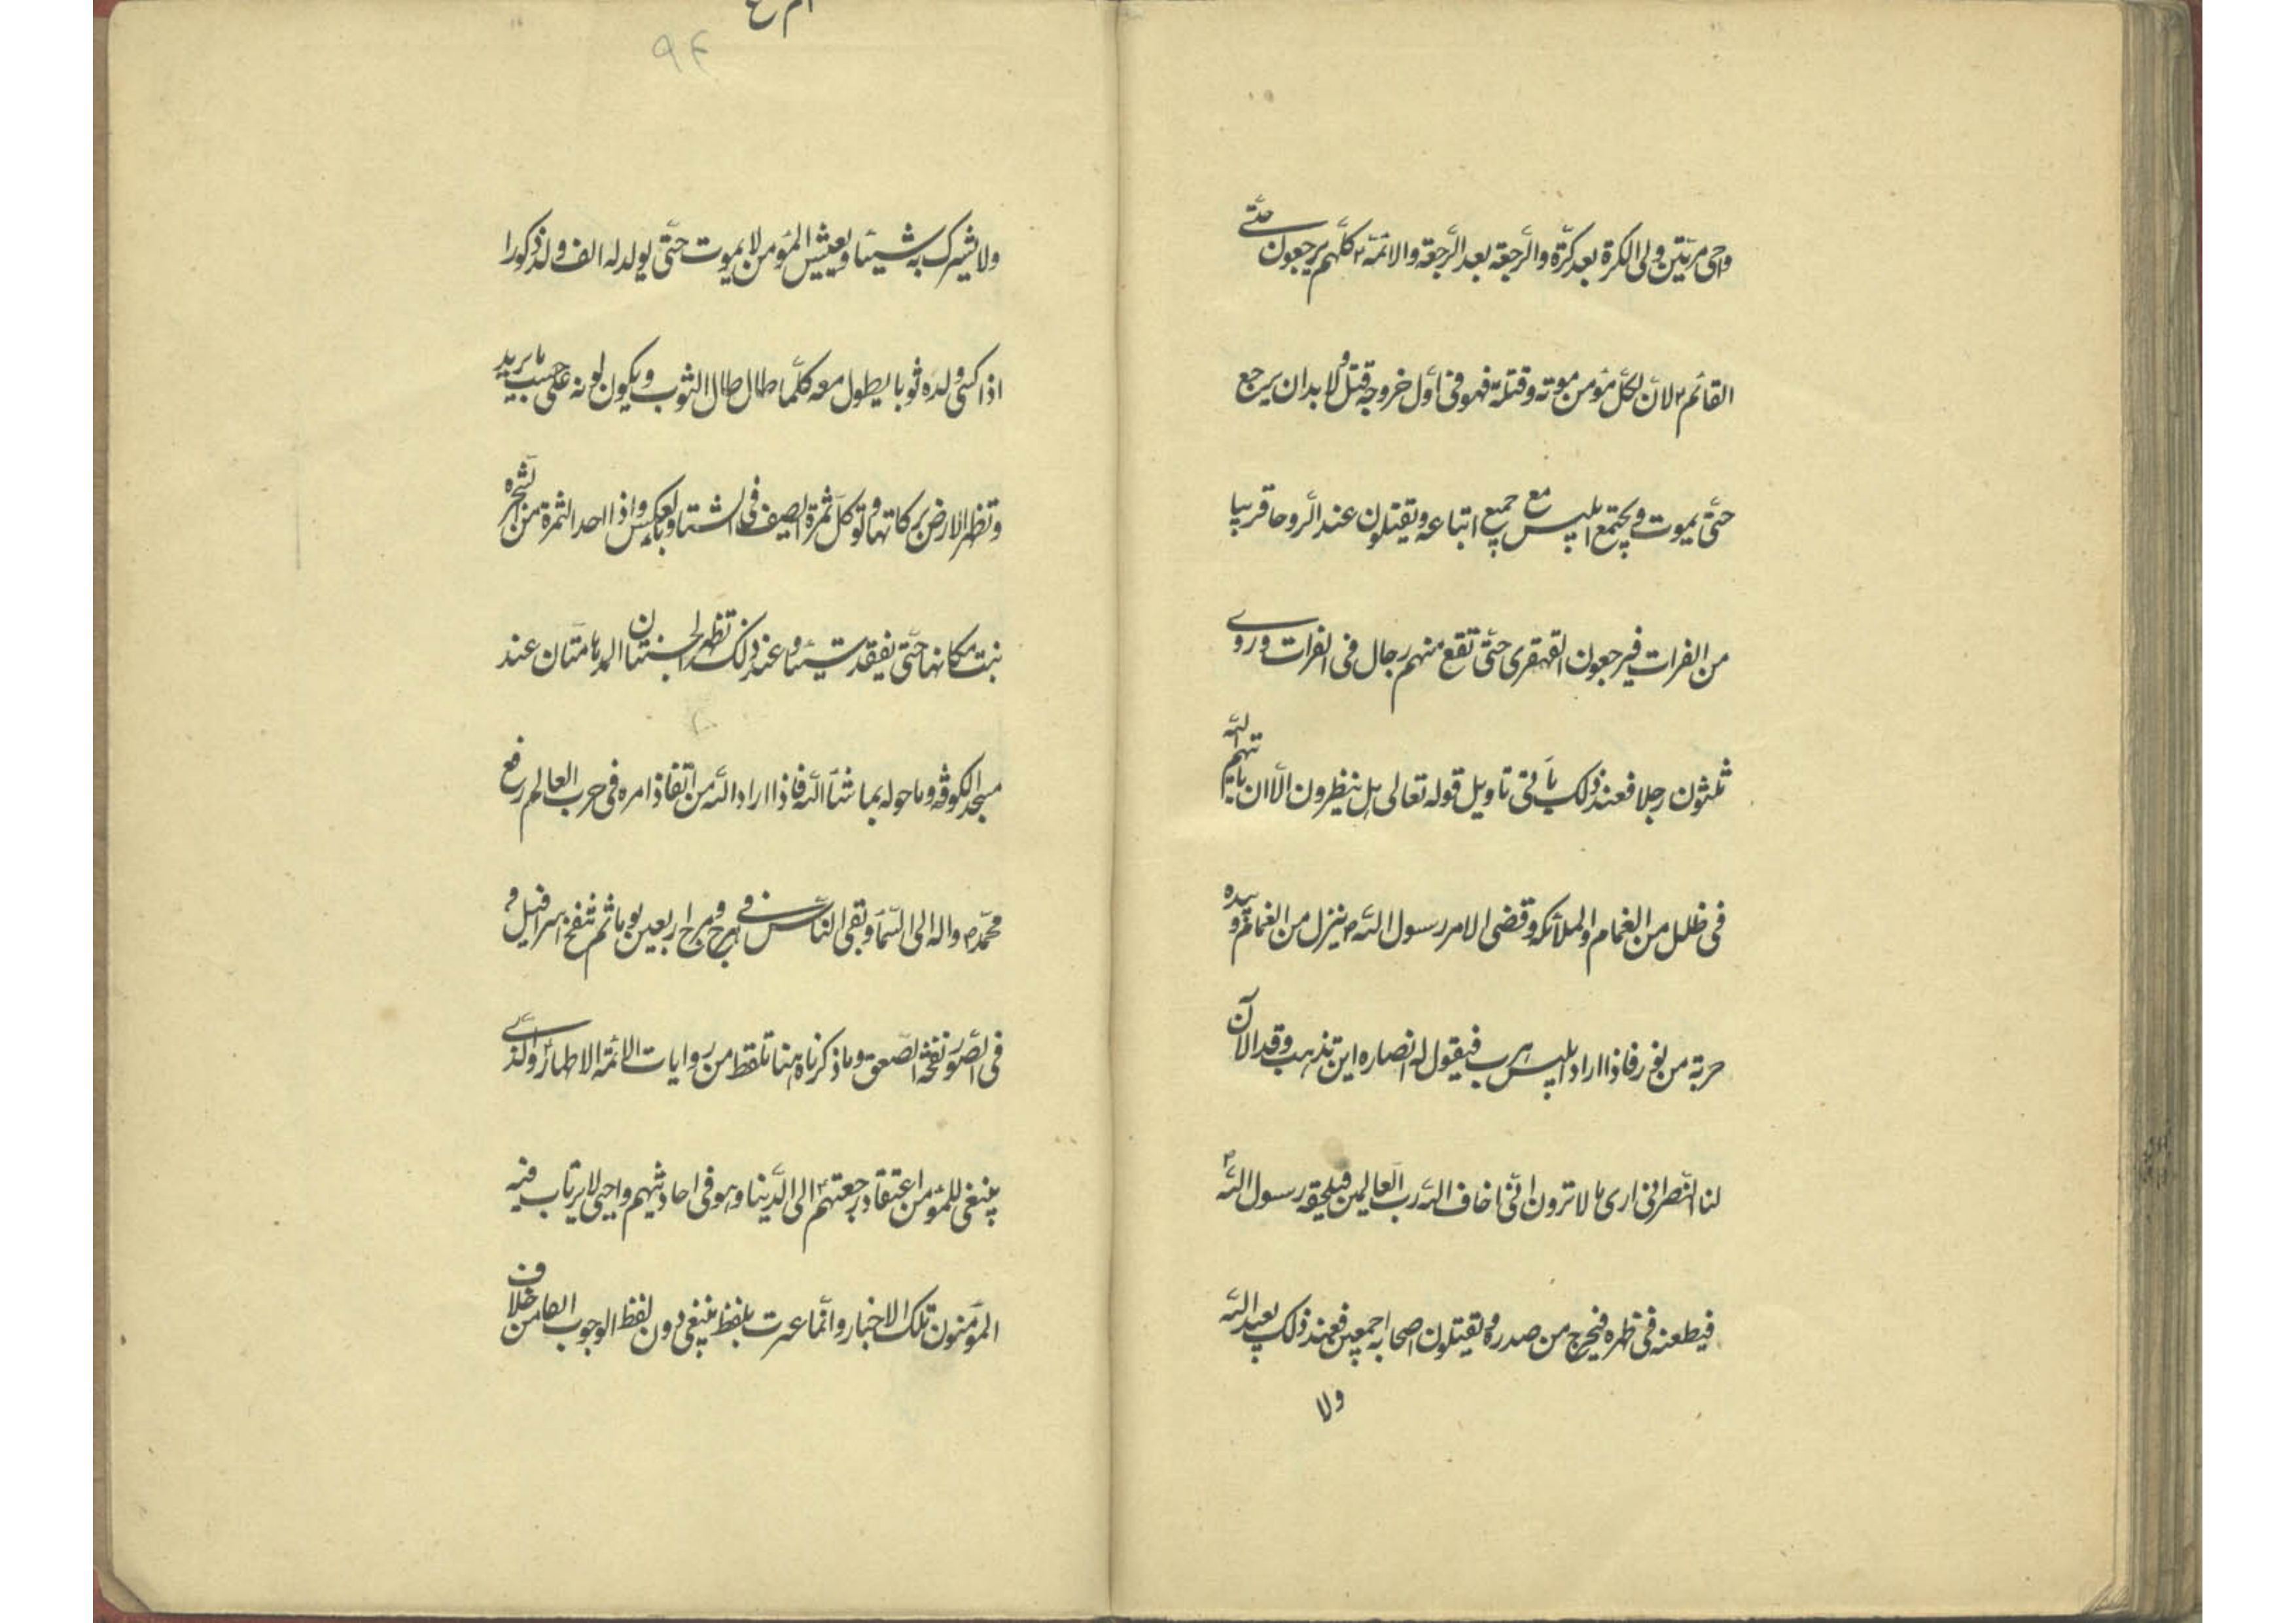 واحی مرتین ولی الکرة بعد کرّة والرّجعة بعد الرّجعة والائمّة ۴ کلّهم یرجعون حتّی
القائم ۴ لانّ لکلّ مؤمن موتة وقتلة فهو فی اوّل خروجه قتل ولا بد ان یرجع
حتّی یموت ویجتمع ابلیس مع جمیع اتباعه ویقتلون عند الرّوحا قریبا
من الفرات فیرجعون القهقری حتّی تقع منهم رجال فی الفرات وروی
ثلثون رجلا فعند ذلک یأتی تاویل قوله تعالی هل ینظرون الّا ان یاتیهم اللّه
فی ظلل من الغمام والملائکة وقضی الامر رسول اللّه ۴ ینزل من الغمام وبیده
حربة من نور فاذا اراد ابلیس هرب فیقول له انصاره این تذهب وقد الآن
لنا النّصر انی اری ما لا ترون انّی اخاف اللّه ربّ العالمین فیلحقه رسول اللّه ۴
فیطعنه فی ظهره فیخرج من صدره ویقتلون اصحابه اجمعین فعند ذلک یعبد اللّه
ولا
۹۴
ولا یشرک به شیئا ویعیش المؤمن لا یموت حتّی یولد له الف ولد ذکورا
اذا کسی ولده ثوبا یطول معه کلّما طال طال الثوب ویکون لونه علی حسب ما یرید
وتظهر الارض برکاتها وتوکل ثمرة الصیف فی الشتا وبالعکس واذا احد الثمرة من الشّجرة
نبت مکانها حتّی لا یفقد شیئا وعند ذلک تظهر الجنتان المدهامّتان عند
مسجد الکوفة وما حوله بما شاء اللّه فاذا اراد اللّه من انّفاذ امره فی خرب العالم رفع
محمّد ۴ واله الی السّمآء وبقی النّاس فی هرج ومرج اربعین یوما ثم ینفخ اسرافیل ۴
فی الصّور نفخة الصّعق وما ذکرناه هنا تلقط من روایات الائمّة الاطهار ۴ والّذی
ینبغی للمؤمن اعتقاد رجعتهم ۴ الی الدّینا وهو فی احادیثهم واجبی لا یرتاب فیه
المؤمنون تلک الاخبار وانّما عبرت بلفظ ینبغی دون لفظ الوجوب الها من خلاف